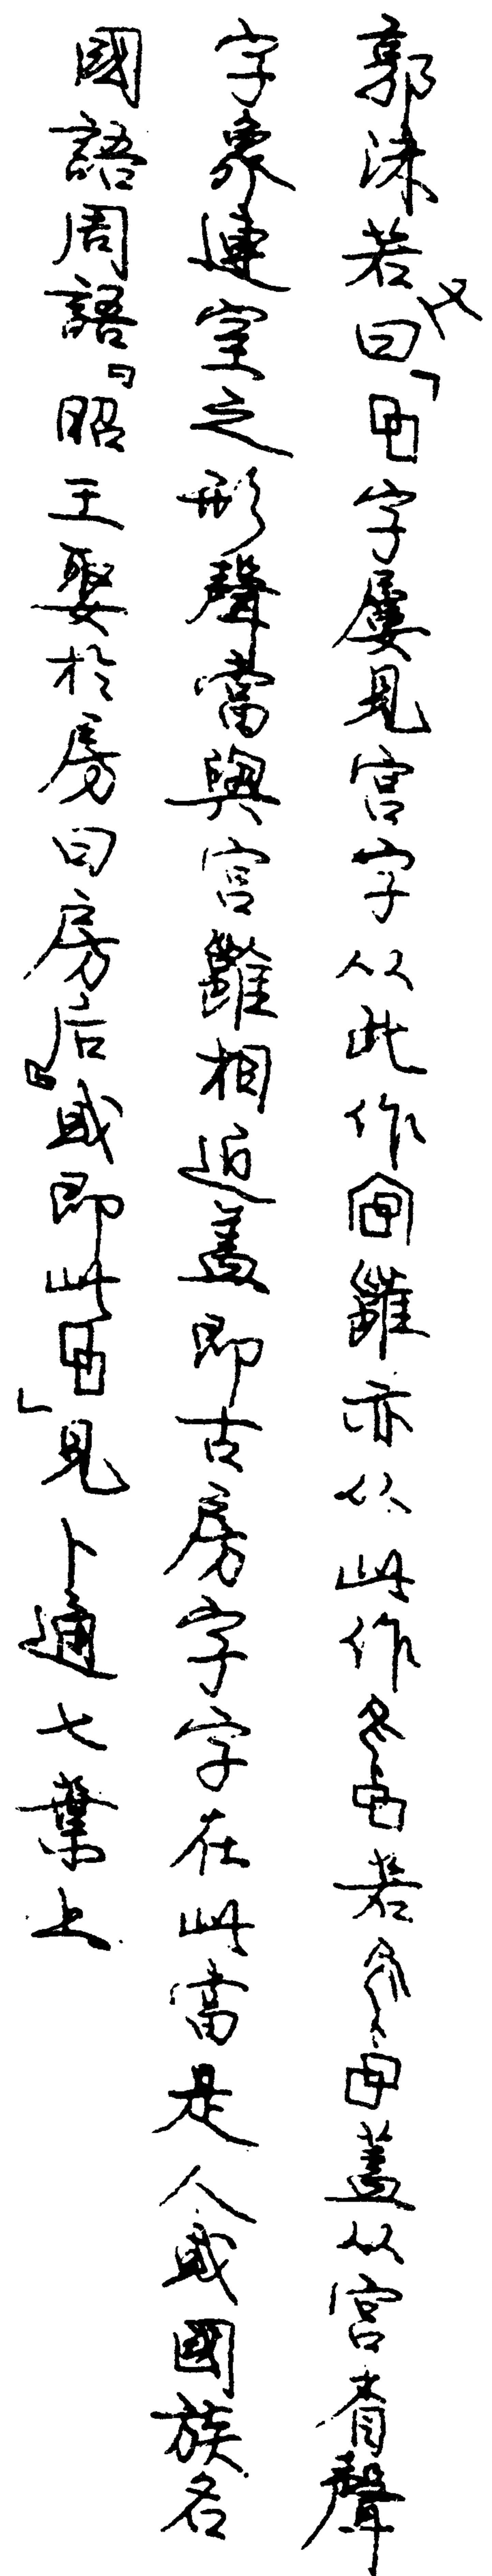 郭沫若曰又「字屢見宮字从此作雝亦从此作若蓋从宮省聲
字象連室之形聲當與宮雝相近蓋即古房字字在此當是人或國族名
國語周語『昭王娶於房曰房后』或即此」見卜通七葉上